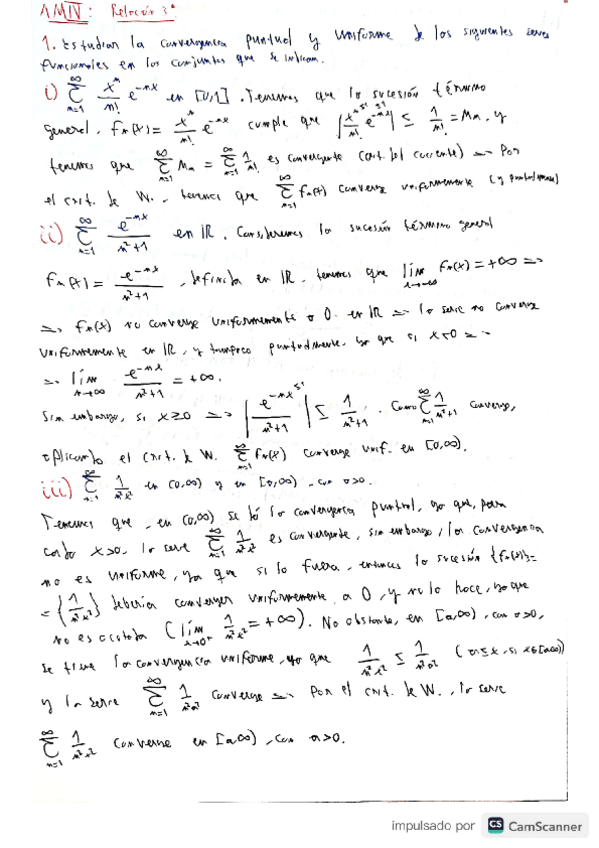 AMIV: Relación 3ª
1. Estudiar la convergencia puntual y uniforme de los siguientes series
funcionales en los conjuntos que se indican.
i) ∞ Σ n=1 xⁿ/n! e^-nx en [0,1]. Tenemos que la sucesión término
general, fn(x) = xⁿ/n! e^-nx cumple que |xⁿ/n! e^-nx| ≤ 1/n! = Mn, y
tenemos que ∞ Σ n=1 Mn = ∞ Σ n=1 1/n! es convergente (crit. del cociente) => Por
el crit. de W. tenemos que ∞ Σ n=1 fn(x) converge uniformemente (y puntualmente)
ii) ∞ Σ n=1 e^-nx/n²+1 en IR. Consideremos la sucesión término general
fn(x) = e^-nx/n²+1, definida en IR, tenemos que lim fn(x) = +∞ =>
=> fn(x) no converge uniformemente a 0 en IR => la serie no converge
uniformemente en IR, y tampoco puntualmente, ya que si x<0 =>
=> lim n→∞ e^-nx/n²+1 = +∞.
Sin embargo, si x≥0 => |e^-nx/n²+1| ≤ 1/n²+1. Como ∞ Σ n=1 1/n²+1 converge,
aplicando el crit. de W. ∞ Σ n=1 fn(x) converge unif. en [0,∞).
iii) ∞ Σ n=1 1/n²x² en (0,∞) y en [a,∞), con a>0.
Tenemos que, en (0,∞) se da la convergencia puntual, ya que, para
cada x>0, la serie ∞ Σ n=1 1/n²x² es convergente, sin embargo, la convergencia
no es uniforme, ya que si lo fuera, entonces la sucesión {fn(x)}=
= {1/n²x²} debería converger uniformemente a 0, y no lo hace, ya que
no es acotada (lim x→0⁺ 1/n²x² = +∞). No obstante, en [a,∞), con a>0,
se tiene la convergencia uniforme, ya que 1/n²x² ≤ 1/n²a² (a≤x, si x∈[a,∞))
y la serie ∞ Σ n=1 1/n²a² converge => Por el crit. de W., la serie
∞ Σ n=1 1/n²x² converge en [a,∞), con a>0.
impulsado por CS CamScanner